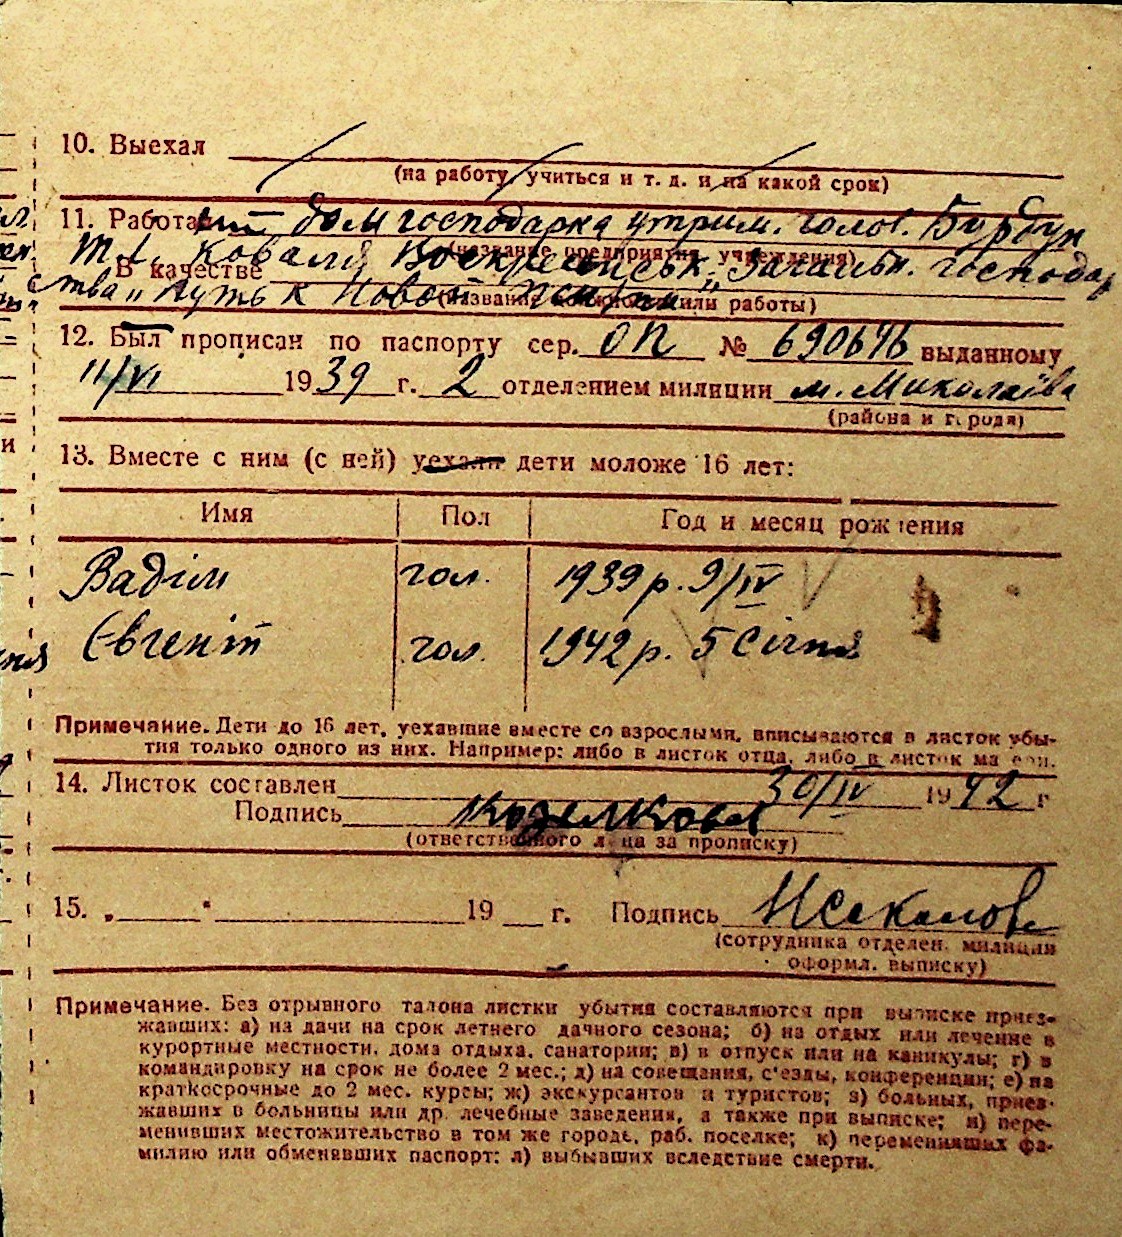 10. Выехал
(на работу, учиться и т. д. и на какой срок)
11. Работа дом господарка утрим. голов. Бурбун
(название предприятия учреждения)
Т. І. Коваля Воскресенськ. Загальн. господар
В качестве
ства „Путь к Новой Жизни"
(название должности или работы)
12. Был прописан по паспорту сер. ОП № 690646 выданному
11/VI 1939 г. 2 отделением милиции м. Миколаїва
(района и города)
13. Вместе с ним (с ней) уехали дети моложе 16 лет:
Имя Пол Год и месяц рождения
Вадім чол. 1939 р. 9/IV
Євгеній чол. 1942 р. 5 Січня
Примечание. Дети до 16 лет, уехавшие вместе со взрослыми, вписываются в листок убы-
тия только одного из них. Например: либо в листок отца, либо в листок матери.
14. Листок составлен 30/IV 1942 г
Подпись
(ответственного лица за прописку)
15. „ " 19 г. Подпись
(сотрудника отделен. милиции
оформл. выписку)
Примечание. Без отрывного талона листки убытия составляются при выписке приез-
жавших: а) на дачи на срок летнего дачного сезона; б) на отдых или лечение в
курортные местности, дома отдыха, санатории; в) в отпуск или на каникулы; г) в
командировку на срок не более 2 мес.; д) на совещания, с'езды, конференции; е) на
краткосрочные до 2 мес. курсы; ж) экскурсантов и туристов; з) больных, приез-
жавших в больницы или др. лечебные заведения, а также при выписке; и) пере-
менивших местожительство в том же городе, раб. поселке; к) переменивших фа-
милию или обменявших паспорт; л) выбывших вследствие смерти.